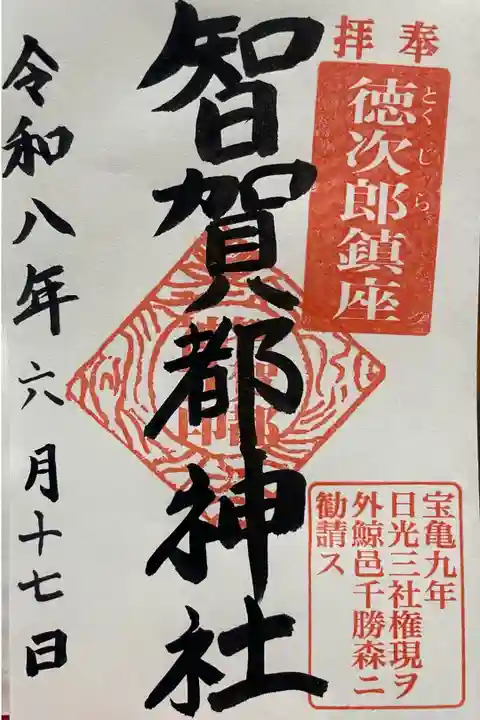 奉拝
徳次郎鎮座
とくじら
智賀都神社
宝亀九年
日光三社権現ヲ
外鯨邑千勝森ニ
勧請ス
令和八年六月十七日